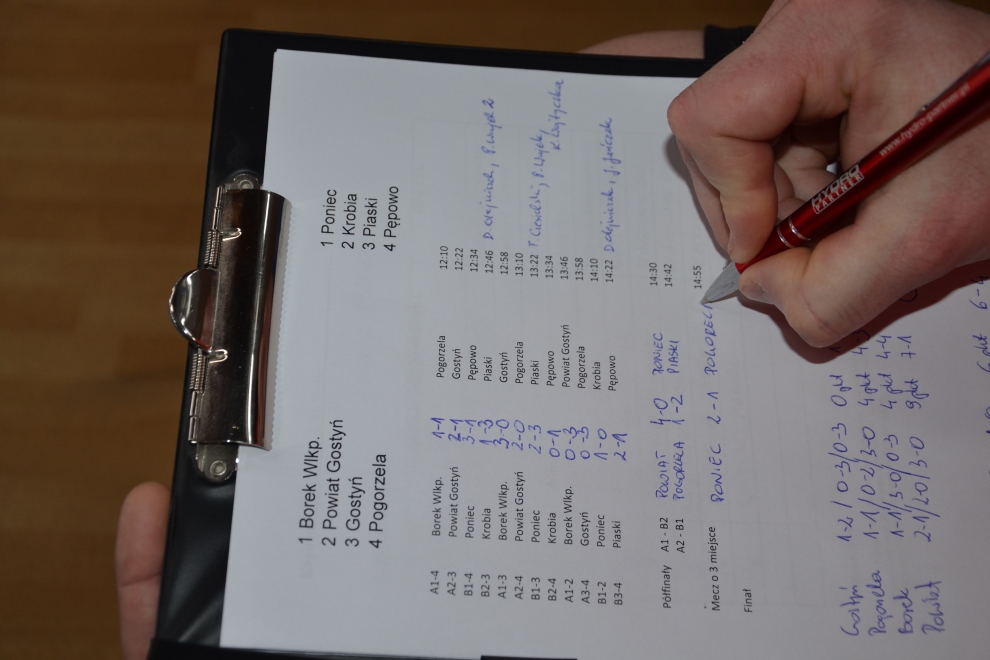 1 Borek Wlkp. 1 Poniec
2 Powiat Gostyń 2 Krobia
3 Gostyń 3 Piaski
4 Pogorzela 4 Pępowo
A1-4 Borek Wlkp. 1-1 Pogorzela 12:10
A2-3 Powiat Gostyń 2-1 Gostyń 12:22
B1-4 Poniec 3-1 Pępowo 12:34
B2-3 Krobia 1-3 Piaski 12:46
A1-3 Borek Wlkp. 3-0 Gostyń 12:58
A2-4 Powiat Gostyń 2-0 Pogorzela 13:10
B1-3 Poniec 2-3 Piaski 13:22
B2-4 Krobia 0-1 Pępowo 13:34
A1-2 Borek Wlkp. 0-3 Powiat Gostyń 13:46
A3-4 Gostyń 0-3 Pogorzela 13:58
B1-2 Poniec 1-0 Krobia 14:10
B3-4 Piaski 2-1 Pępowo 14:22
Półfinały A1 - B2 POWIAT 4-0 PONIEC 14:30
A2 - B1 POGORZELA 1-2 PIASKI 14:42
Mecz o 3 miejsce PONIEC 2-1 POGORZEL 14:55
Finał
Gostyń 1-2/0-3/0-3 0 pkt
Pogorzela 1-1/0-2/3-0 4 pkt
Borek 1-1/3-0/0-3 4 pkt 4-4
Powiat 2-1/2-0/3-0 9 pkt 7-1
HYDRO
PARTNER
www.hydro-partner.pl